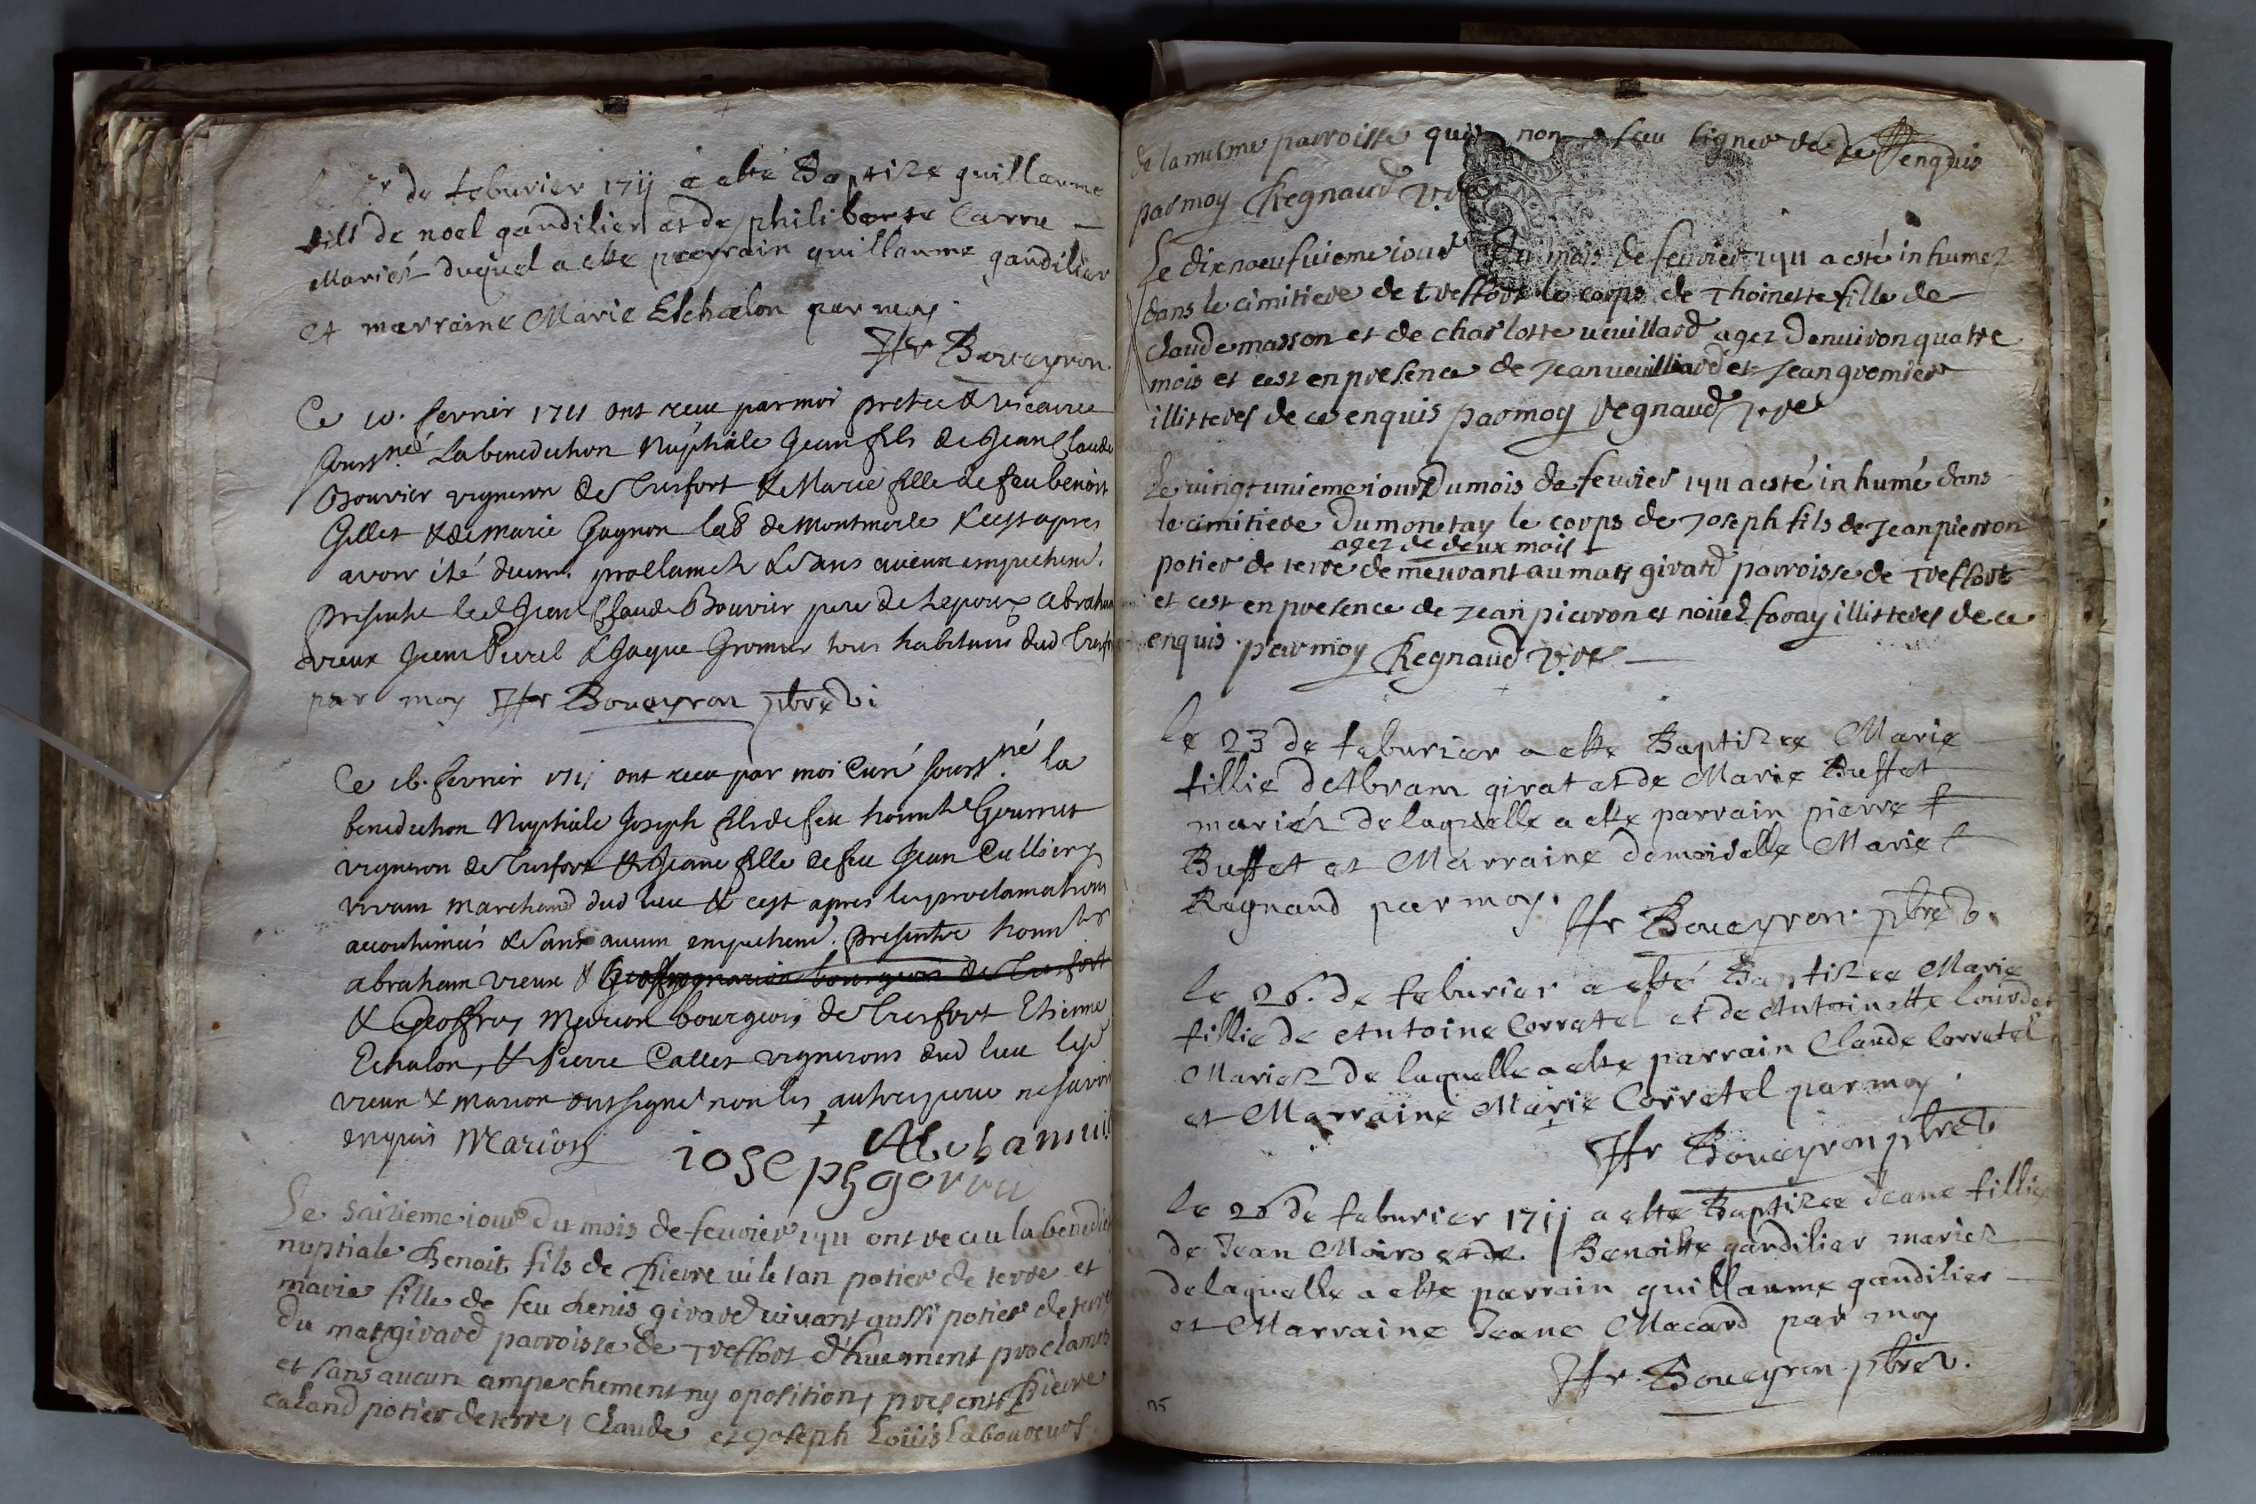 de feburier 1711 a esté Baptize guillaume
fils de noel gandilier et de philiberte Carru
Mariés duquel a este parrain guillaume gandilier
et marraine Marie Elchalon par moy
Boueyron
Ce 10. fevrier 1711 ont receu par moi pretre & vicaire
sousné La benediction Nuptiale Jean fils de Jean Claude
Bouvier vigneron de Tresfort & Marie fille de feu benoit
Gillet & de marie Gagnon lab de Montmerle & cest apres
avoir été duem. proclamez & sans aucun empechem.
Presents led Jean Claude Bouvier pere de lepoux abraham
vieux Jean Purel & Jaque Gromier tous habitans dud Tresfort
par moy Boueyron pbre vi
Ce 16. fevrier 1711 ont receu par moi Curé sousné la
benediction Nuptiale Joseph fils de feu honnte Gourret
vigneron de Tresfort & Jeane fille de feu Jean Cullier
vivant marchand dud lieu & cest apres les proclamations
accoutumées & sans aucun empechem. presents honntes
abraham vieux &
& Geoffroy Marion bourgeois de Tresfort Etienne
Echalon, & Pierre Callet vignerons dud lieu lesd
vieux & marion ont signé non les autres pour ne savoir
enquis Marion
ioseph goru
Le saizieme iour du mois de feuvier 1711 ont receu la benedic
nuptiale Benoit fils de pierre uiletan potier de terre et
marie fille de feu denis girard uivant aussi potier de terre
du mas girard parroisse de Treffort dhuement proclamés
et sans aucun ampechement ny oposition, presents pierre
caland potier de terre, Claude et Joseph Louis laboureurs
de la mesme parroisse qui non sceu signer de ce enquis
par moy Regnaud v.re
Le dix noeufuieme iour du mois de feuvier 1711 a esté inhumez
dans le cimitiere de treffort le corps de Thoinette fille de
claude masson et de charlotte ueuillard agez denuiron quatre
mois et cest en presence de Jean ueuilliard et Jean gromier
illitteres de ce enquis par moy regnaud v.re
Le uingt unieme iour du mois de feuvier 1711 a esté inhumé dans
le cimitiere du monetay le corps de Joseph fils de Jean pierron
agez de deux mois
potier de terre demeurant au mas girard parroisse de Treffort
et cest en presence de Jean pierron et noüel foray illitteres de ce
enquis par moy Regnaud v.re
le 23 de feburier a este Baptizee Marie
fillie dAbram girat et de Marie Buffet
mariés de laquelle a este parrain pierre
Buffet et Marraine demoiselle Marie
Regnaud par moy.
Boueyron. pbre v.
le 26. de feburier a esté Baptizee Marie
fillie de Antoine Corretel et de Antoinette lourdet
Mariez de laquelle a este parrain Claude Corretel
et Marraine Marie Corretel par moy
Boueyron pbre v
le 26 de feburier 1711 a este Baptizee Jeane fillie
de Jean Moiro et de Benoitte gandilier mariez
de laquelle a este parrain guillaume gandilier
et Marraine Jeane Macard par moy
Boueyron. pbre v.